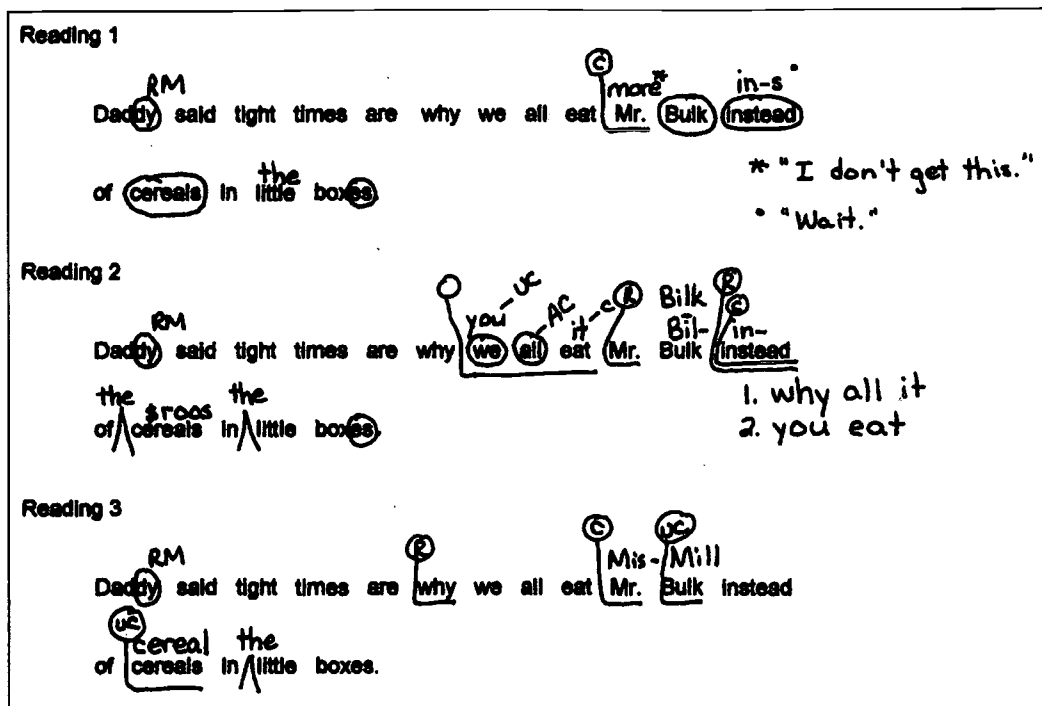 Reading 1
RM © more* in-s°
Daddy said tight times are why we all eat Mr. Bulk instead
the
of cereals in little boxes.
* "I don't get this."
° "Wait."
Reading 2
you - UC - AC it - C R Bilk R
RM Bil- C in-
Daddy said tight times are why we all eat Mr. Bulk instead
the $roos the
of cereals in little boxes.
1. why all it
2. you eat
Reading 3
R C UC
RM Mis- Mill
Daddy said tight times are why we all eat Mr. Bulk instead
UC cereal the
of cereals in little boxes.